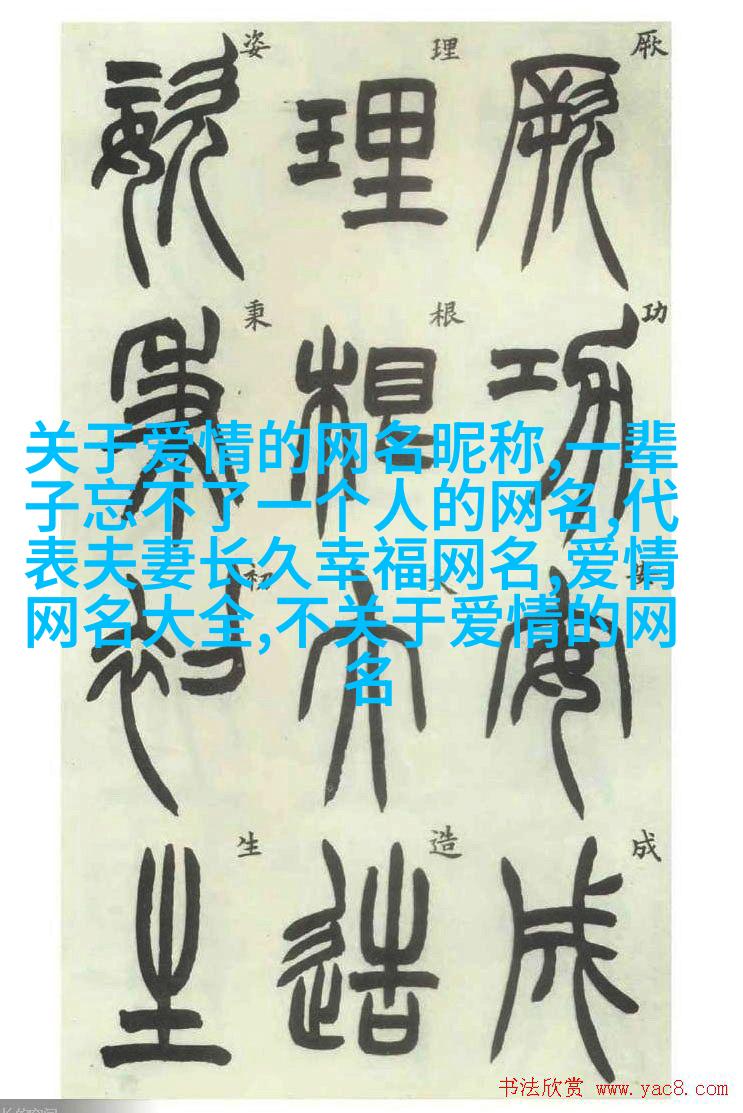 厥功安成
理根大造
姿秉初生
厥
功
成
理
根
造
姿
秉
初
生
关于爱情的网名昵称,一辈
子忘不了一个人的网名,代
表夫妻长久幸福网名,爱情
网名大全,不关于爱情的网
名
书法欣赏 www.yac8.com